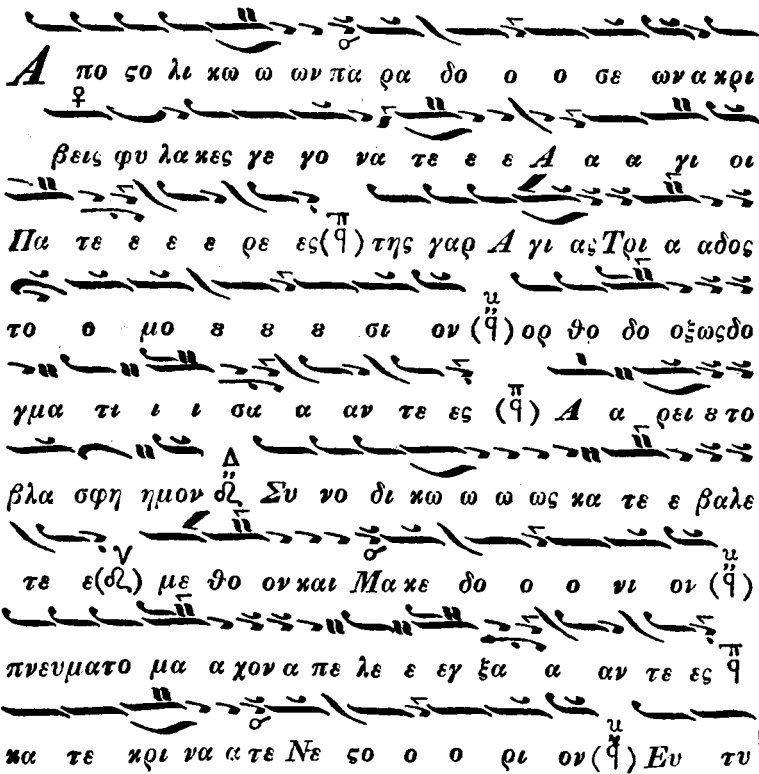 Α πο ϛο λι κω ω ων πα ρα δο ο ο σε ων α κρι
βεις φυ λα κες γε γο να τε ε ε Α α α γι οι
Πα τε ε ε ε ρε ες (π ϥ) της γαρ Α γι ας Τρι α αδος
το ο μο ȣ ȣ ȣ σι ον (κ ϥ) ορ θο δο οξως δο
γμα τι ι ι σα α αν τε ες (π ϥ) Α α ρει ȣ το
βλα σφη ημον Δ Συ νο δι κω ω ω ως κα τε ε βαλε
τε ε (ν) με θο ον και Μα κε δο ο ο νι ον (κ ϥ)
πνευματο μα α χον α πε λε ε εγ ξα α αν τε ες π ϥ
κα τε κρι να α τε Νε ϛο ο ο ρι ον (κ ϥ) Ευ τυ